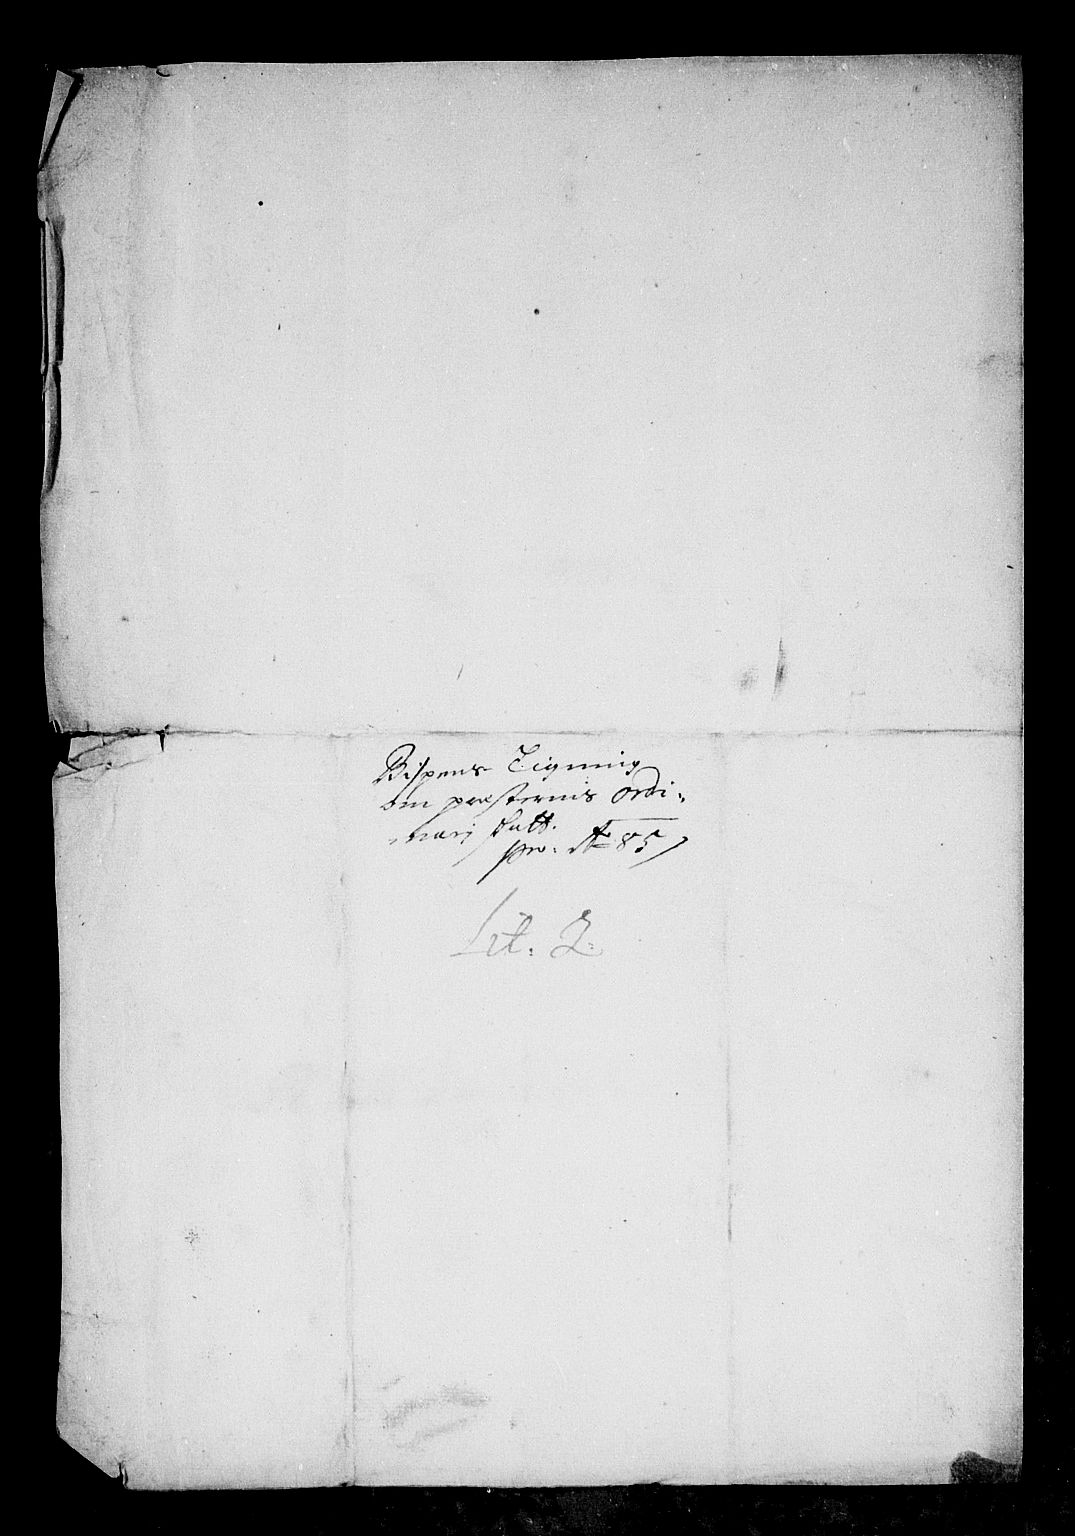 Bispens Ligning
om presternis ordi-
narj skatt.
pro: Ao 85
Lit: 2.